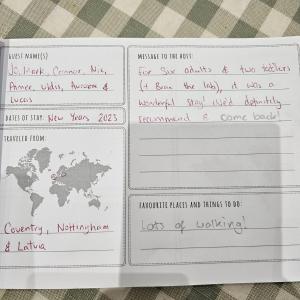 GUEST NAME(S)
Jo, Mark, Connor, Nic,
Aimee, Uldis, Aurora &
Lucas
DATES OF STAY: New Years 2023
TRAVELLER FROM:
Coventry, Nottingham
& Latvia
MESSAGE TO THE HOST:
For Six adults & two toddlers
(+ Bear the lab), it was a
wonderful stay! We'd definitely
recommend & come back!
FAVOURITE PLACES AND THINGS TO DO:
Lots of walking!